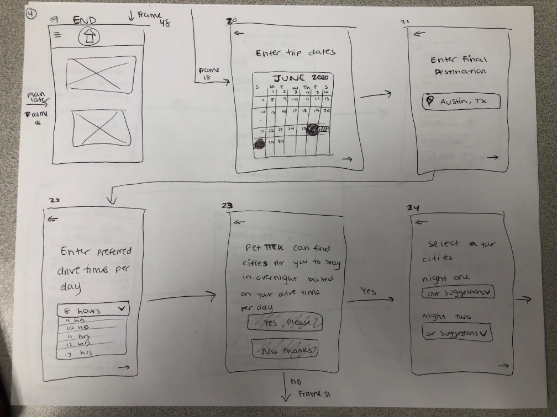 4
19
END
Frame
48
Frame
18
20
Enter trip dates
JUNE 2020
S M T W Th F S
21
Enter Final
Destination
Austin, Tx
22
Enter preferred
drive time per
day
8 hours
10 hrs
11 hrs
12 hrs
23
can find
cities for you to stay
in overnight based
on your drive time
per day
Yes, please!
No thanks
Yes
no
Frame 31
24
select your
cities
night one
our suggestions
night two
our suggestions